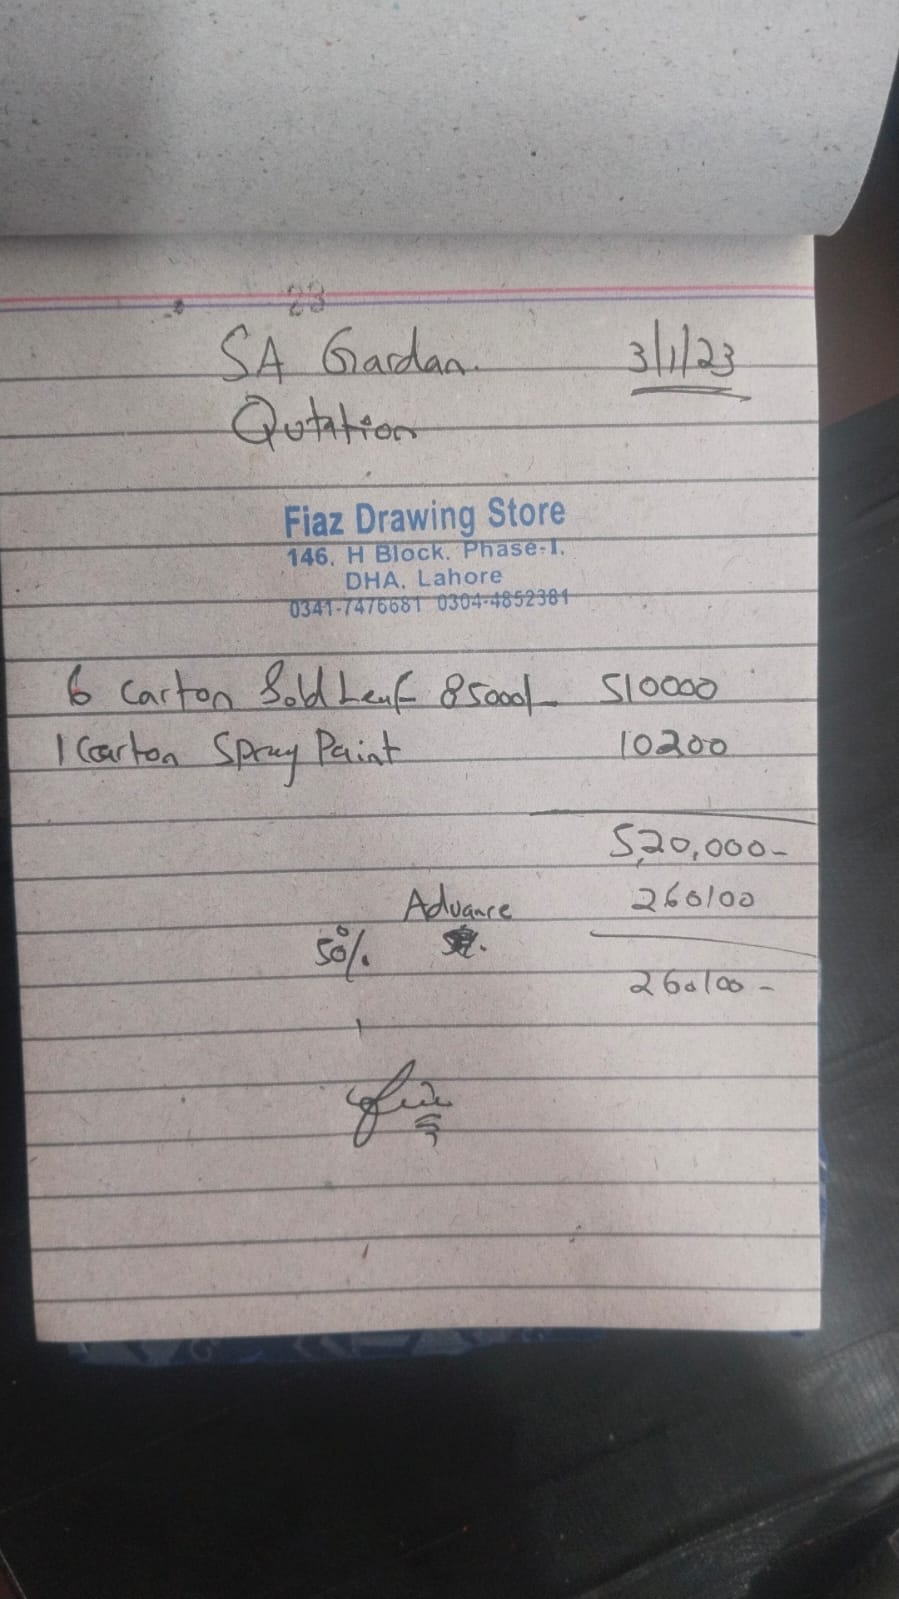 23
SA Gardan. 3/1/23
Qutation
Fiaz Drawing Store
146, H Block, Phase-1,
DHA, Lahore
0341-7476681 0304-4852381
6 Carton Gold Leaf 85000/- 510000
1 Carton Spray Paint 10200
520,000-
Advance 260100
50%
260100-